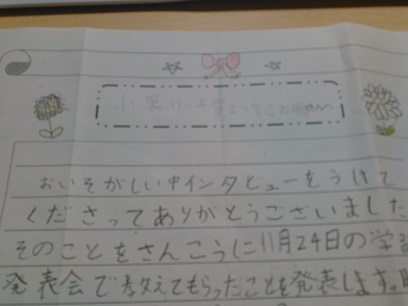 おいそがしい中インタビューをうけて
くださってありがとうございました
そのことをさんこうに11月24日の学
発表会で教えてもらったことを発表します。